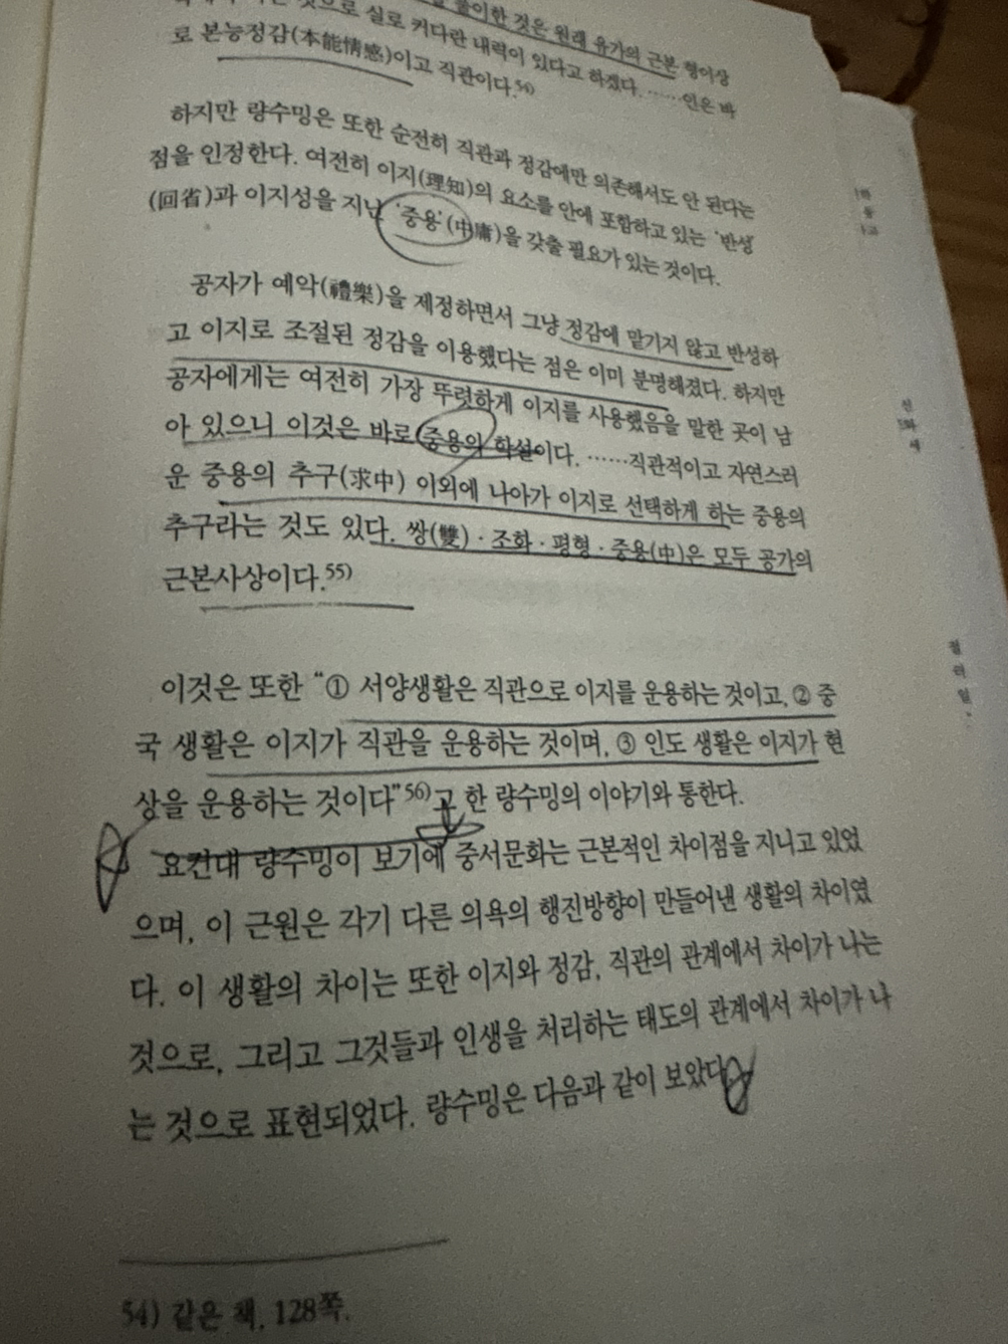 붙이한 것은 원래 유가의 근본 형이상
것으로 실로 커다란 내력이 있다고 하겠다. ……인은 바
로 본능정감(本能情感)이고 직관이다.54)
하지만 량수밍은 또한 순전히 직관과 정감에만 의존해서도 안 된다는
점을 인정한다. 여전히 이지(理知)의 요소를 안에 포함하고 있는 '반성'
(回省)과 이지성을 지닌 '중용'(中庸)을 갖출 필요가 있는 것이다.
공자가 예악(禮樂)을 제정하면서 그냥 정감에 맡기지 않고 반성하
고 이지로 조절된 정감을 이용했다는 점은 이미 분명해졌다. 하지만
공자에게는 여전히 가장 뚜렷하게 이지를 사용했음을 말한 곳이 남
아 있으니 이것은 바로 중용의 학설이다. ……직관적이고 자연스러
운 중용의 추구(求中) 이외에 나아가 이지로 선택하게 하는 중용의
추구라는 것도 있다. 쌍(雙)·조화·평형·중용(中)은 모두 공가의
근본사상이다.55)
이것은 또한 “① 서양생활은 직관으로 이지를 운용하는 것이고, ② 중
국 생활은 이지가 직관을 운용하는 것이며, ③ 인도 생활은 이지가 현
상을 운용하는 것이다”56)고 한 량수밍의 이야기와 통한다.
요컨대 량수밍이 보기에 중서문화는 근본적인 차이점을 지니고 있었
으며, 이 근원은 각기 다른 의욕의 행진방향이 만들어낸 생활의 차이였
다. 이 생활의 차이는 또한 이지와 정감, 직관의 관계에서 차이가 나는
것으로, 그리고 그것들과 인생을 처리하는 태도의 관계에서 차이가 나
는 것으로 표현되었다. 량수밍은 다음과 같이 보았다.
54) 같은 책, 128쪽.